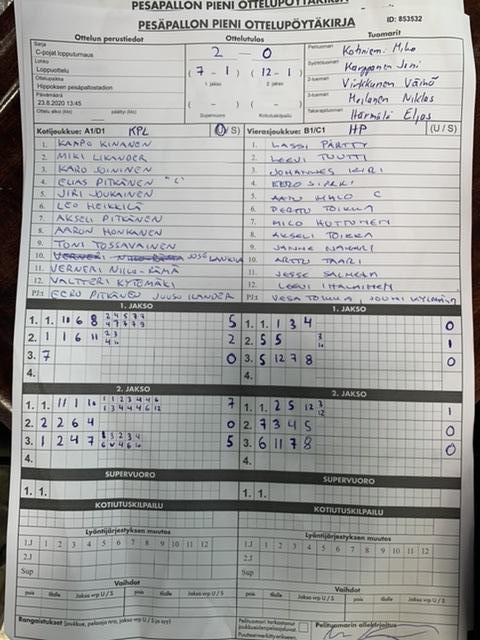 PESÄPALLON PIENI OTTELUPÖYTÄKIRJA
PESÄPALLON PIENI OTTELUPÖYTÄKIRJA
ID: 853532
Ottelun perustiedot Ottelutulos Tuomarit
Sarja
C-pojat lopputurnaus
2 - 0
Pelituomari
Lohko
Loppuottelu
(7 - 1) (12 - 1)
1. jakso 2. jakso
Syöttötuomari Karppanen Joni
Ottelupaikka
Hippoksen pesäpallostadion
2-tuomari Virkkunen Väinö
Päivämäärä
23.8.2020 13:45
( - ) ( - )
3-tuomari Moilanen Niklas
Ottelu alkoi (klo) päättyi (klo)
Supervuoro Kotiutuskilpailu
Takarajatuomari Härmälä Eljas
Kotijoukkue: A1/D1 KPL (U/S) Vierasjoukkue: B1/C1 HP (U / S)
1. KAAPO KINANEN 1. LASSI PÄRTTY
2. MIKI LIKANDER 2. LEEVI TUUTTI
3. KARO JOININEN 3. JOHANNES
4. ELIAS PITKÄNEN "C" 4. EERO
5. JIRI JOUKAINEN 5. AATU HALO C
6. LEO HEIKKILÄ 6. PERTTU TOIKKA
7. AKSELI PITKÄNEN 7. MILO HUTTUNEN
8. AARON HONKANEN 8. AKSELI TOIKKA
9. TONI TOSSAVAINEN 9. JANNE
10. JOSE 10. ARTTU TAARI
11. VERNERI NIILO-RÄMÄ 11. JESSE SALMELA
12. VALTTERI KYTÖMÄKI 12. LEEVI IHALAINEN
PJ:t EERO PITKÄNEN JUUSO ILANDER PJ:t VESA TOIKKA, JOUNI
1. JAKSO 1. JAKSO
1. 1. 10 6 8 2 4 5 7 7 5 1. 1. 1 3 4 0
4 7 7 7 9
2. 1 1 6 11 2 3 2 2. 5 5 3 1
4 10 10
3. 7 0 3. 5 12 7 8 0
4. 4.
2. JAKSO 2. JAKSO
1. 1. 11 1 10 1 1 2 3 4 4 6 7 1. 1. 2 5 12 3 1
1 3 4 4 4 6 12 12
2. 2 2 6 4 0 2. 7 3 4 5 0
3. 1 2 4 7 5 3. 6 11 7 8 0
4. 4.
SUPERVUORO SUPERVUORO
1. 1. 1. 1.
KOTIUTUSKILPAILU KOTIUTUSKILPAILU
Lyöntijärjestyksen muutos Lyöntijärjestyksen muutos
1.J 1 2 3 4 5 6 7 8 9 10 11 12 1.J 1 2 3 4 5 6 7 8 9 10 11 12
2.J 2.J
Sup Sup
Vaihdot Vaihdot
pois tilalle Jakso vrp U / S pois tilalle Jakso vrp U / S pois tilalle Jakso vrp U / S pois tilalle Jakso vrp U / S
Rangaistukset (joukkue, pelaaja nro, jakso vrp U / S ja syy)
Pelituomarin allekirjoitus